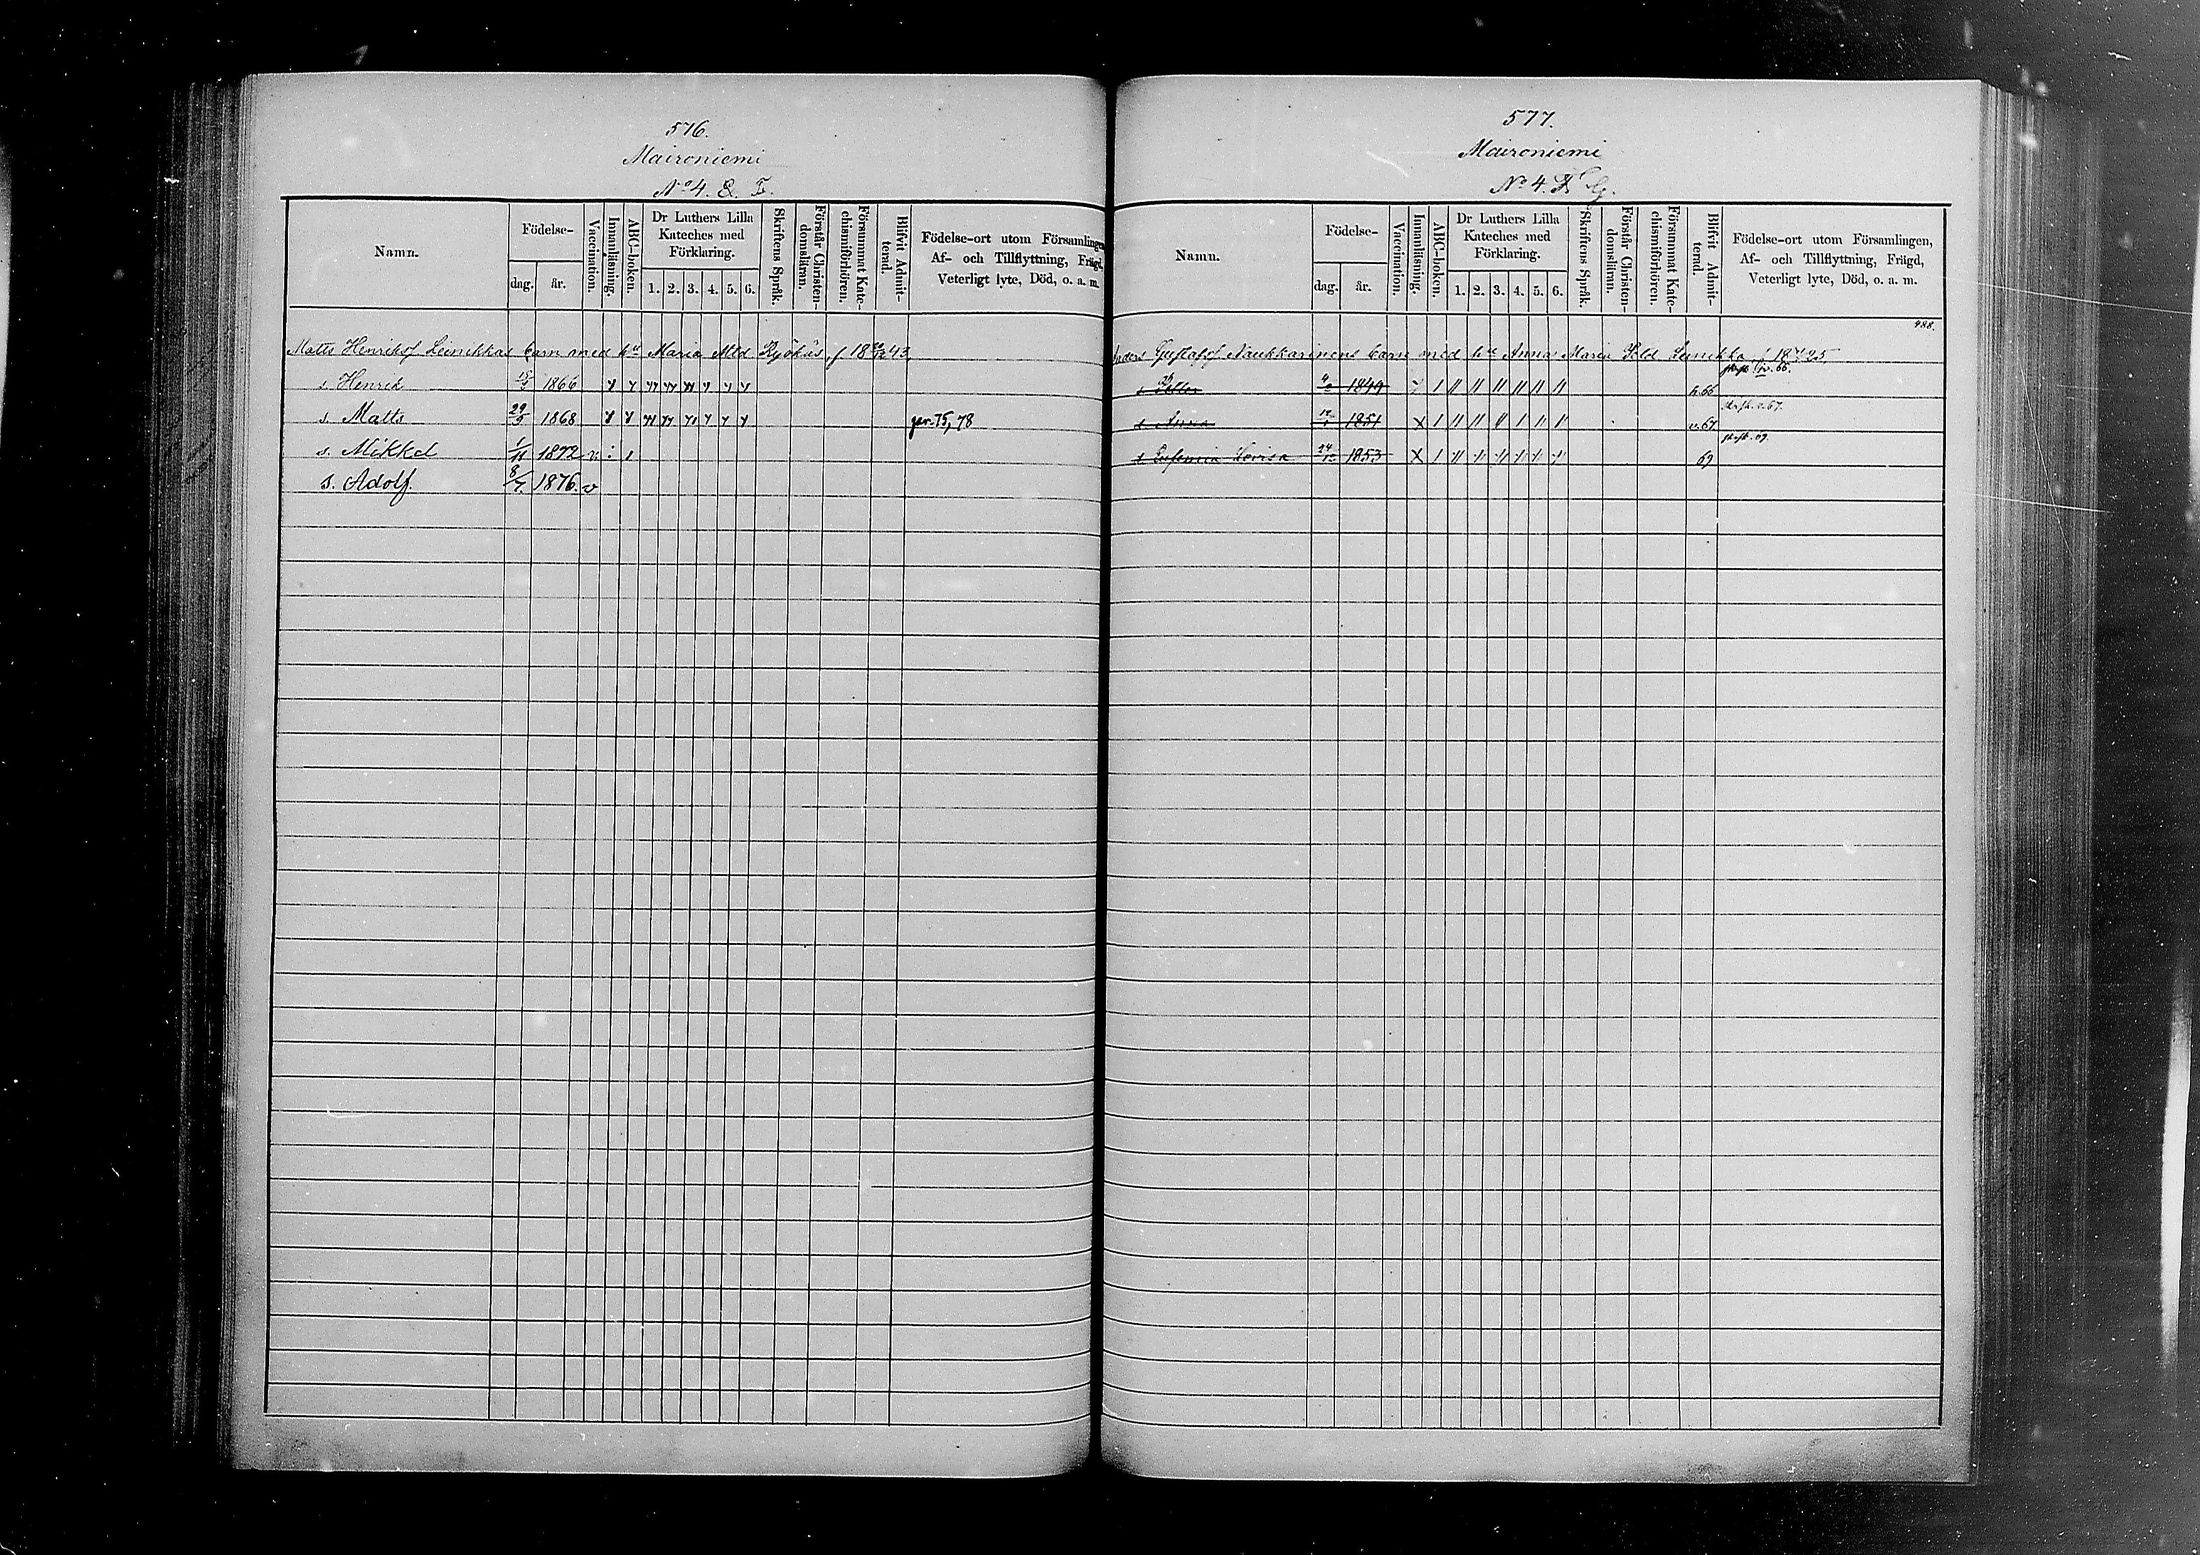 576.
Maironiemi
No 4. E. F.
Namn.
Födelse-
dag. år.
Vaccination.
Innanläsning.
ABC-boken.
Dr Luthers Lilla
Kateches med
Förklaring.
1. 2. 3. 4. 5. 6.
Skriftens Språk.
Förstår Christen-
domsläran.
Försummat Kate-
chismiförhören.
Blifvit Admit-
terad.
Födelse-ort utom Församlingen,
Af- och Tillflyttning, Frägd,
Veterligt lyte, Död, o. a. m.
Matts Henriksf Leinikkas barn med hu Maria Mtd f 18 43
s. Henrik 1866
s. Matts 29/9 1868 75, 78
s. Mikkel 1/11 1872 v
s. Adolf. 8/7. 1876. v
577.
Maironiemi
No 4. G.
Namn.
Födelse-
dag. år.
Vaccination.
Innanläsning.
ABC-boken.
Dr Luthers Lilla
Kateches med
Förklaring.
1. 2. 3. 4. 5. 6.
Skriftens Språk.
Förstår Christen-
domsläran.
Försummat Kate-
chismiförhören.
Blifvit Admit-
terad.
Födelse-ort utom Församlingen,
Af- och Tillflyttning, Frägd,
Veterligt lyte, Död, o. a. m.
488.
Anders Gustafsf Naukkarinens barn med hu Anna Maria 25
1849 h. 66
Anna 1851 v. 67
Eufemia Lovisa 24 1853 69